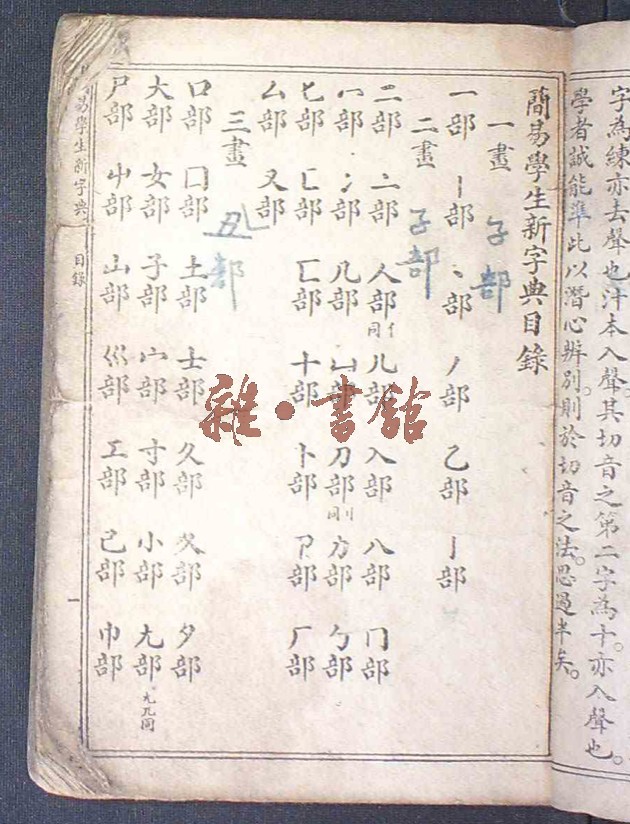 字為練亦去聲也汁本入聲其切音之第二字為十亦入聲也。
學者誠能準此以潛心辨別則於切音之法思過半矣。
簡易學生新字典目錄
一畫 子部
一部 丨部 丶部 丿部 乙部 亅部
二畫 子部
二部 亠部 人部同亻 儿部 入部 八部 冂部
冖部 冫部 几部 凵部 刀部同刂 力部 勹部
匕部 匚部 匸部 十部 卜部 卩部 厂部
厶部 又部
三畫 丑部
口部 囗部 土部 士部 夂部 夊部 夕部
大部 女部 子部 宀部 寸部 小部 尢部
尸部 屮部 山部 巛部 工部 己部 巾部
易學生新字典 目錄 一
雜·書館